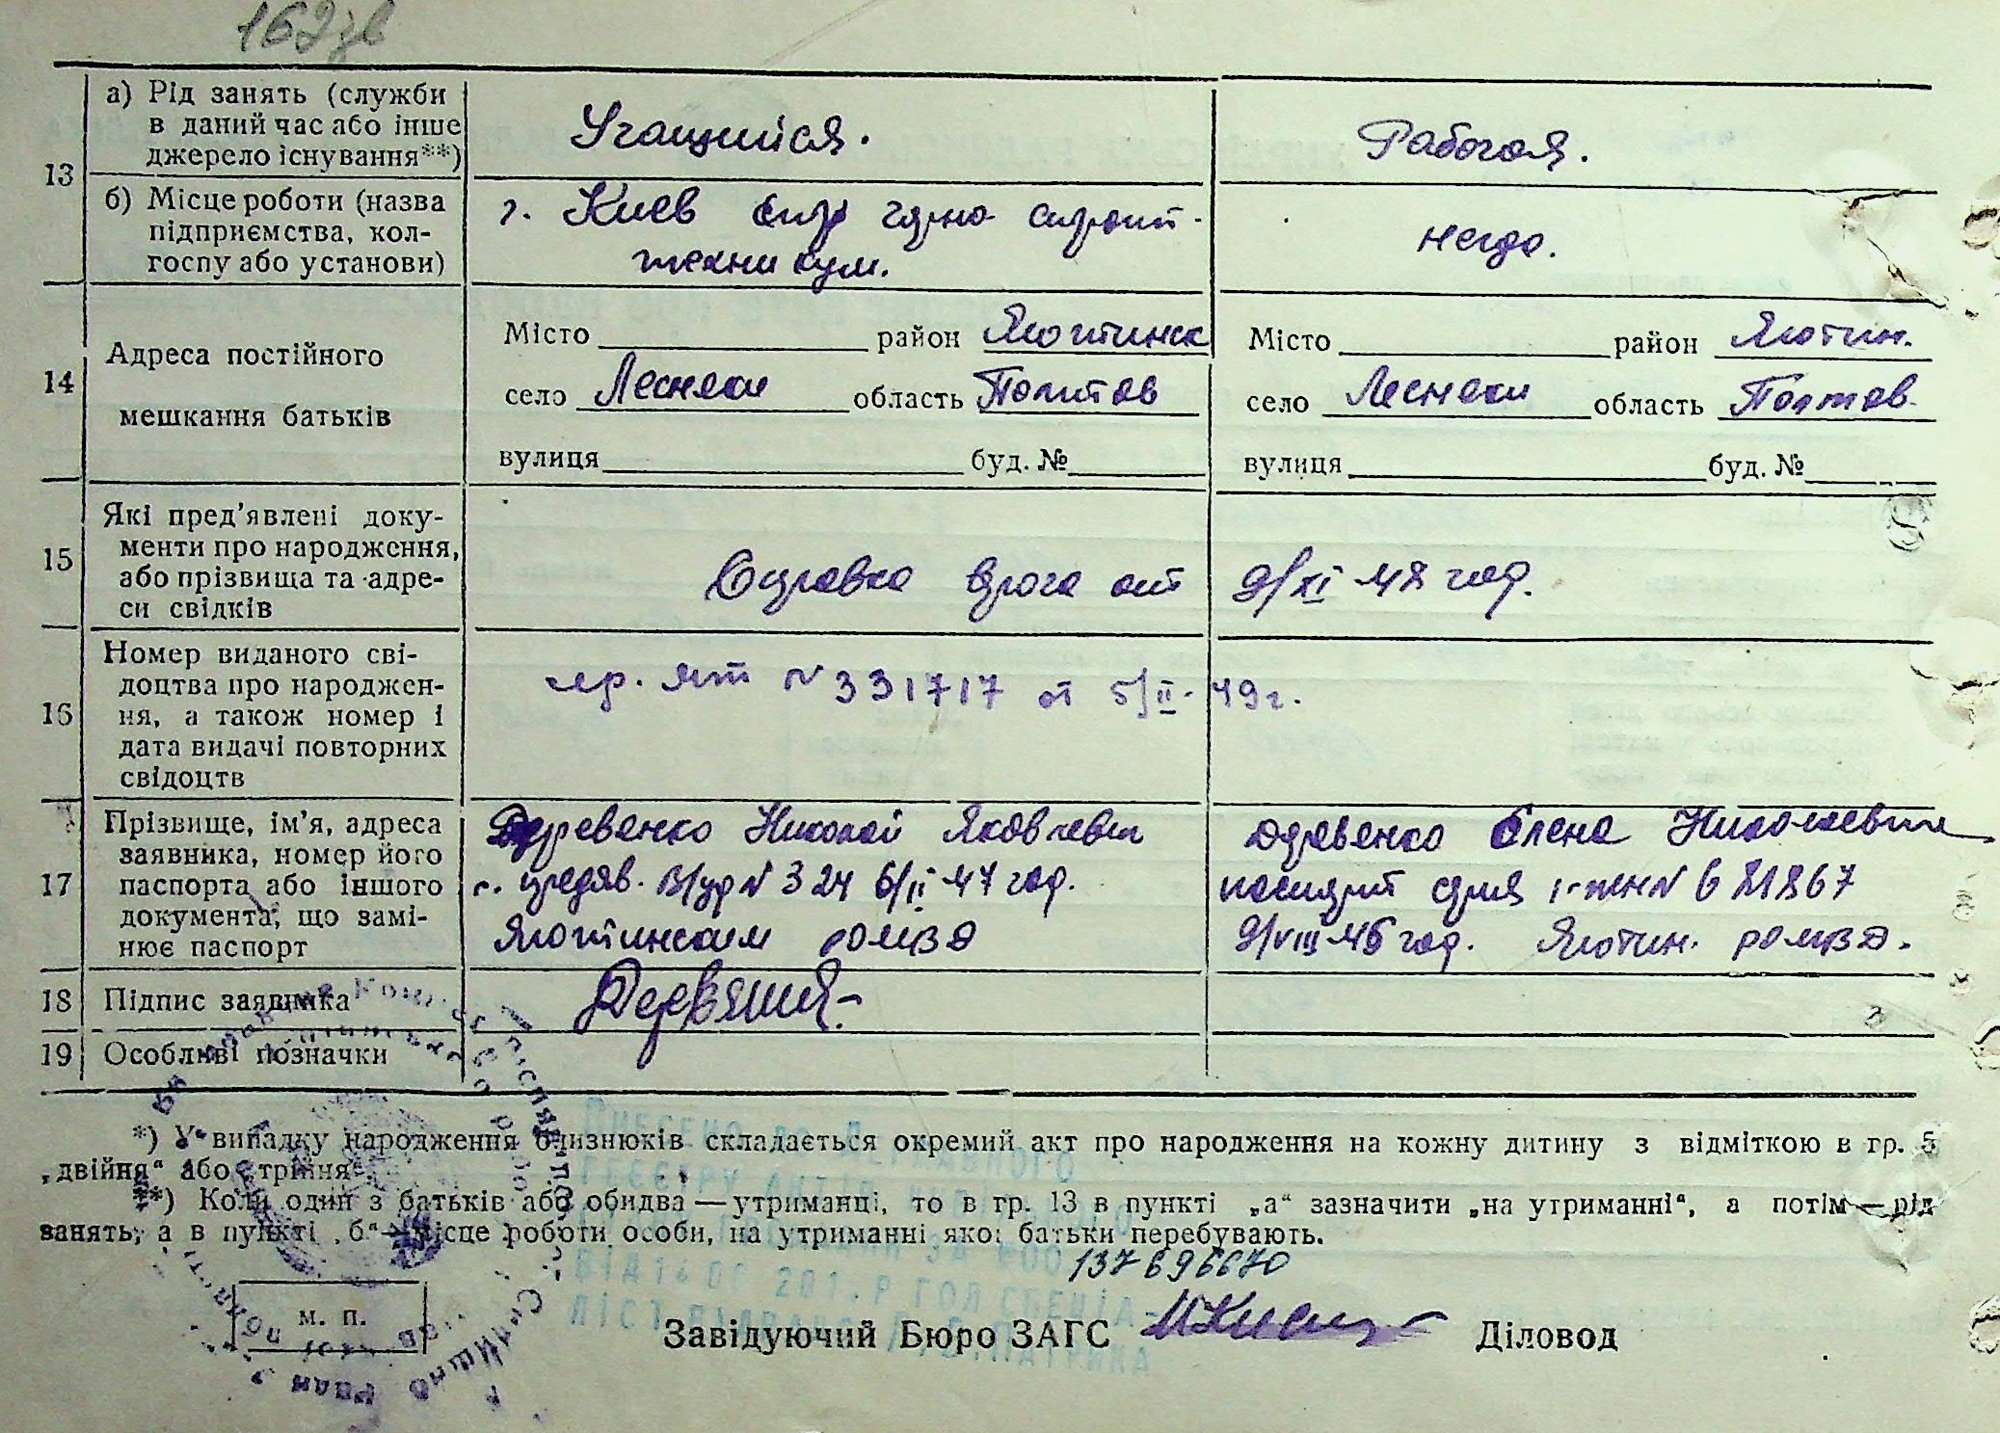 162зв
13
а) Рід занять (служби
в даний час або інше
джерело існування**)
Учащийся.
Рабочая.
б) Місце роботи (назва
підприємства, кол-
госпу або установи)
г. Киев горно строит
техникум.
14
Адреса постійного
мешкання батьків
Місто район Яготинск
село Лесняки область Полтов
вулиця буд. №
Місто район Яготин.
село Лесняки область Полтов
вулиця буд. №
15
Які пред'явлені доку-
менти про народження,
або прізвища та адре-
си свідків
Справка врача от 9/XI 48 год.
16
Номер виданого сві-
доцтва про народжен-
ня, а також номер і
дата видачі повторних
свідоцтв
№ 331717 от 5/II-49г.
17
Прізвище, ім'я, адреса
заявника, номер його
паспорта або іншого
документа, що замі-
нює паспорт
Деревенко Николай Яковлевич
предяв. № 324 6/II 47 год.
Яготинским РОМВД
Деревенко Елена Николаевна
9/VIII-46 год. Яготин. РОМВД.
18
Підпис заявника
19
Особливі позначки
*) У випадку народження близнюків складається окремий акт про народження на кожну дитину з відміткою в гр. 5
„двійня“ або „трійня“.
**) Коли один з батьків або обидва — утриманці, то в гр. 13 в пункті „а“ зазначити „на утриманні“, а потім — рід
занять, а в пункті „б“ — місце роботи особи, на утриманні якої батьки перебувають.
137696670
м. п.
Завідуючий Бюро ЗАГС
Діловод